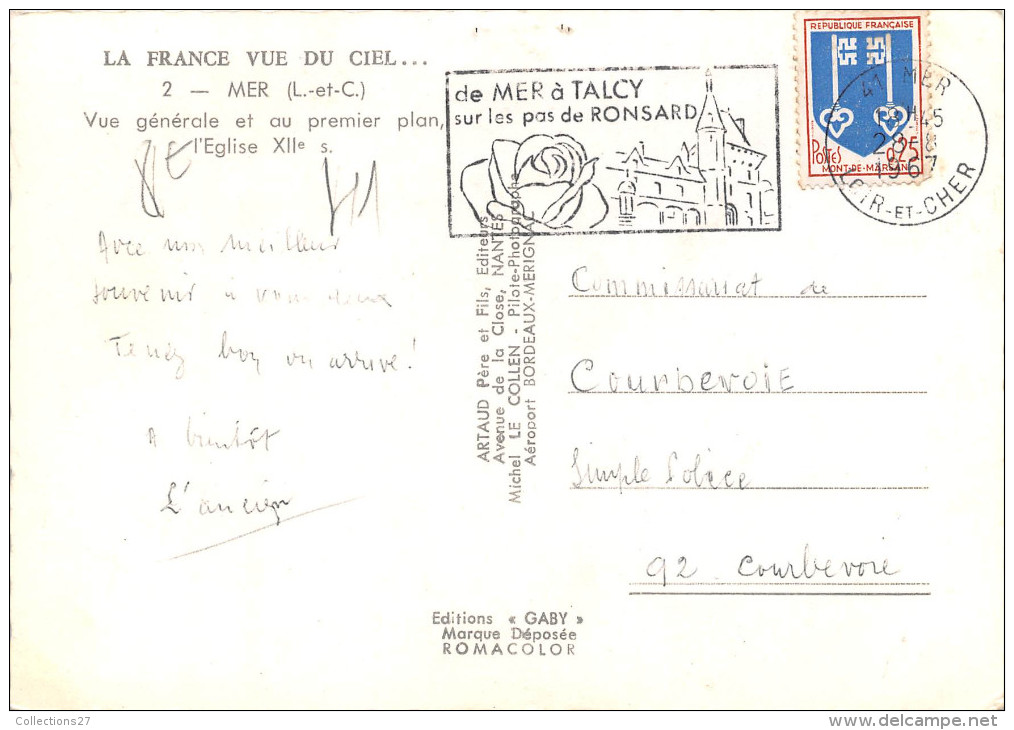 LA FRANCE VUE DU CIEL...
2 — MER (L.-et-C.)
Vue générale et au premier plan,
l'Eglise XIIe s.
de MER à TALCY
sur les pas de RONSARD
REPUBLIQUE FRANÇAISE
POSTES
0,25
MONT-DE-MARSAN
41 MER
18H45
28-8
1967
LOIR-ET-CHER
Avec mon meilleur
souvenir à vous deux
Tenez bon on arrive!
A bientôt
L'ancien
ARTAUD Père et Fils, Editeurs
Avenue de la Close, NANTES
Michel LE COLLEN - Pilote-Photographe
Aéroport BORDEAUX-MERIGNAC
Commissariat de
Courbevoie
Simple Police
92 Courbevoie
Editions « GABY »
Marque Déposée
ROMACOLOR
Collections27
www.delcampe.net